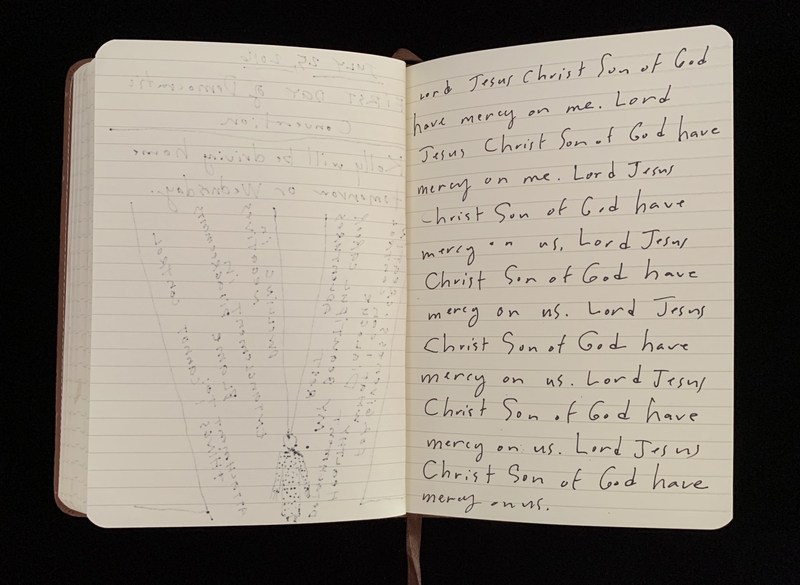 July 25, 2016
FIRST DAY of Democratic
Convention
Kelly will be driving home
tomorrow or Wednesday.
Lord Jesus Christ Son of God
have mercy on me. Lord
Jesus Christ Son of God have
mercy on me. Lord Jesus
Christ Son of God have
mercy on us, Lord Jesus
Christ Son of God have
mercy on us. Lord Jesus
Christ Son of God have
mercy on us. Lord Jesus
Christ Son of God have
mercy on us. Lord Jesus
Christ Son of God have
mercy on us.